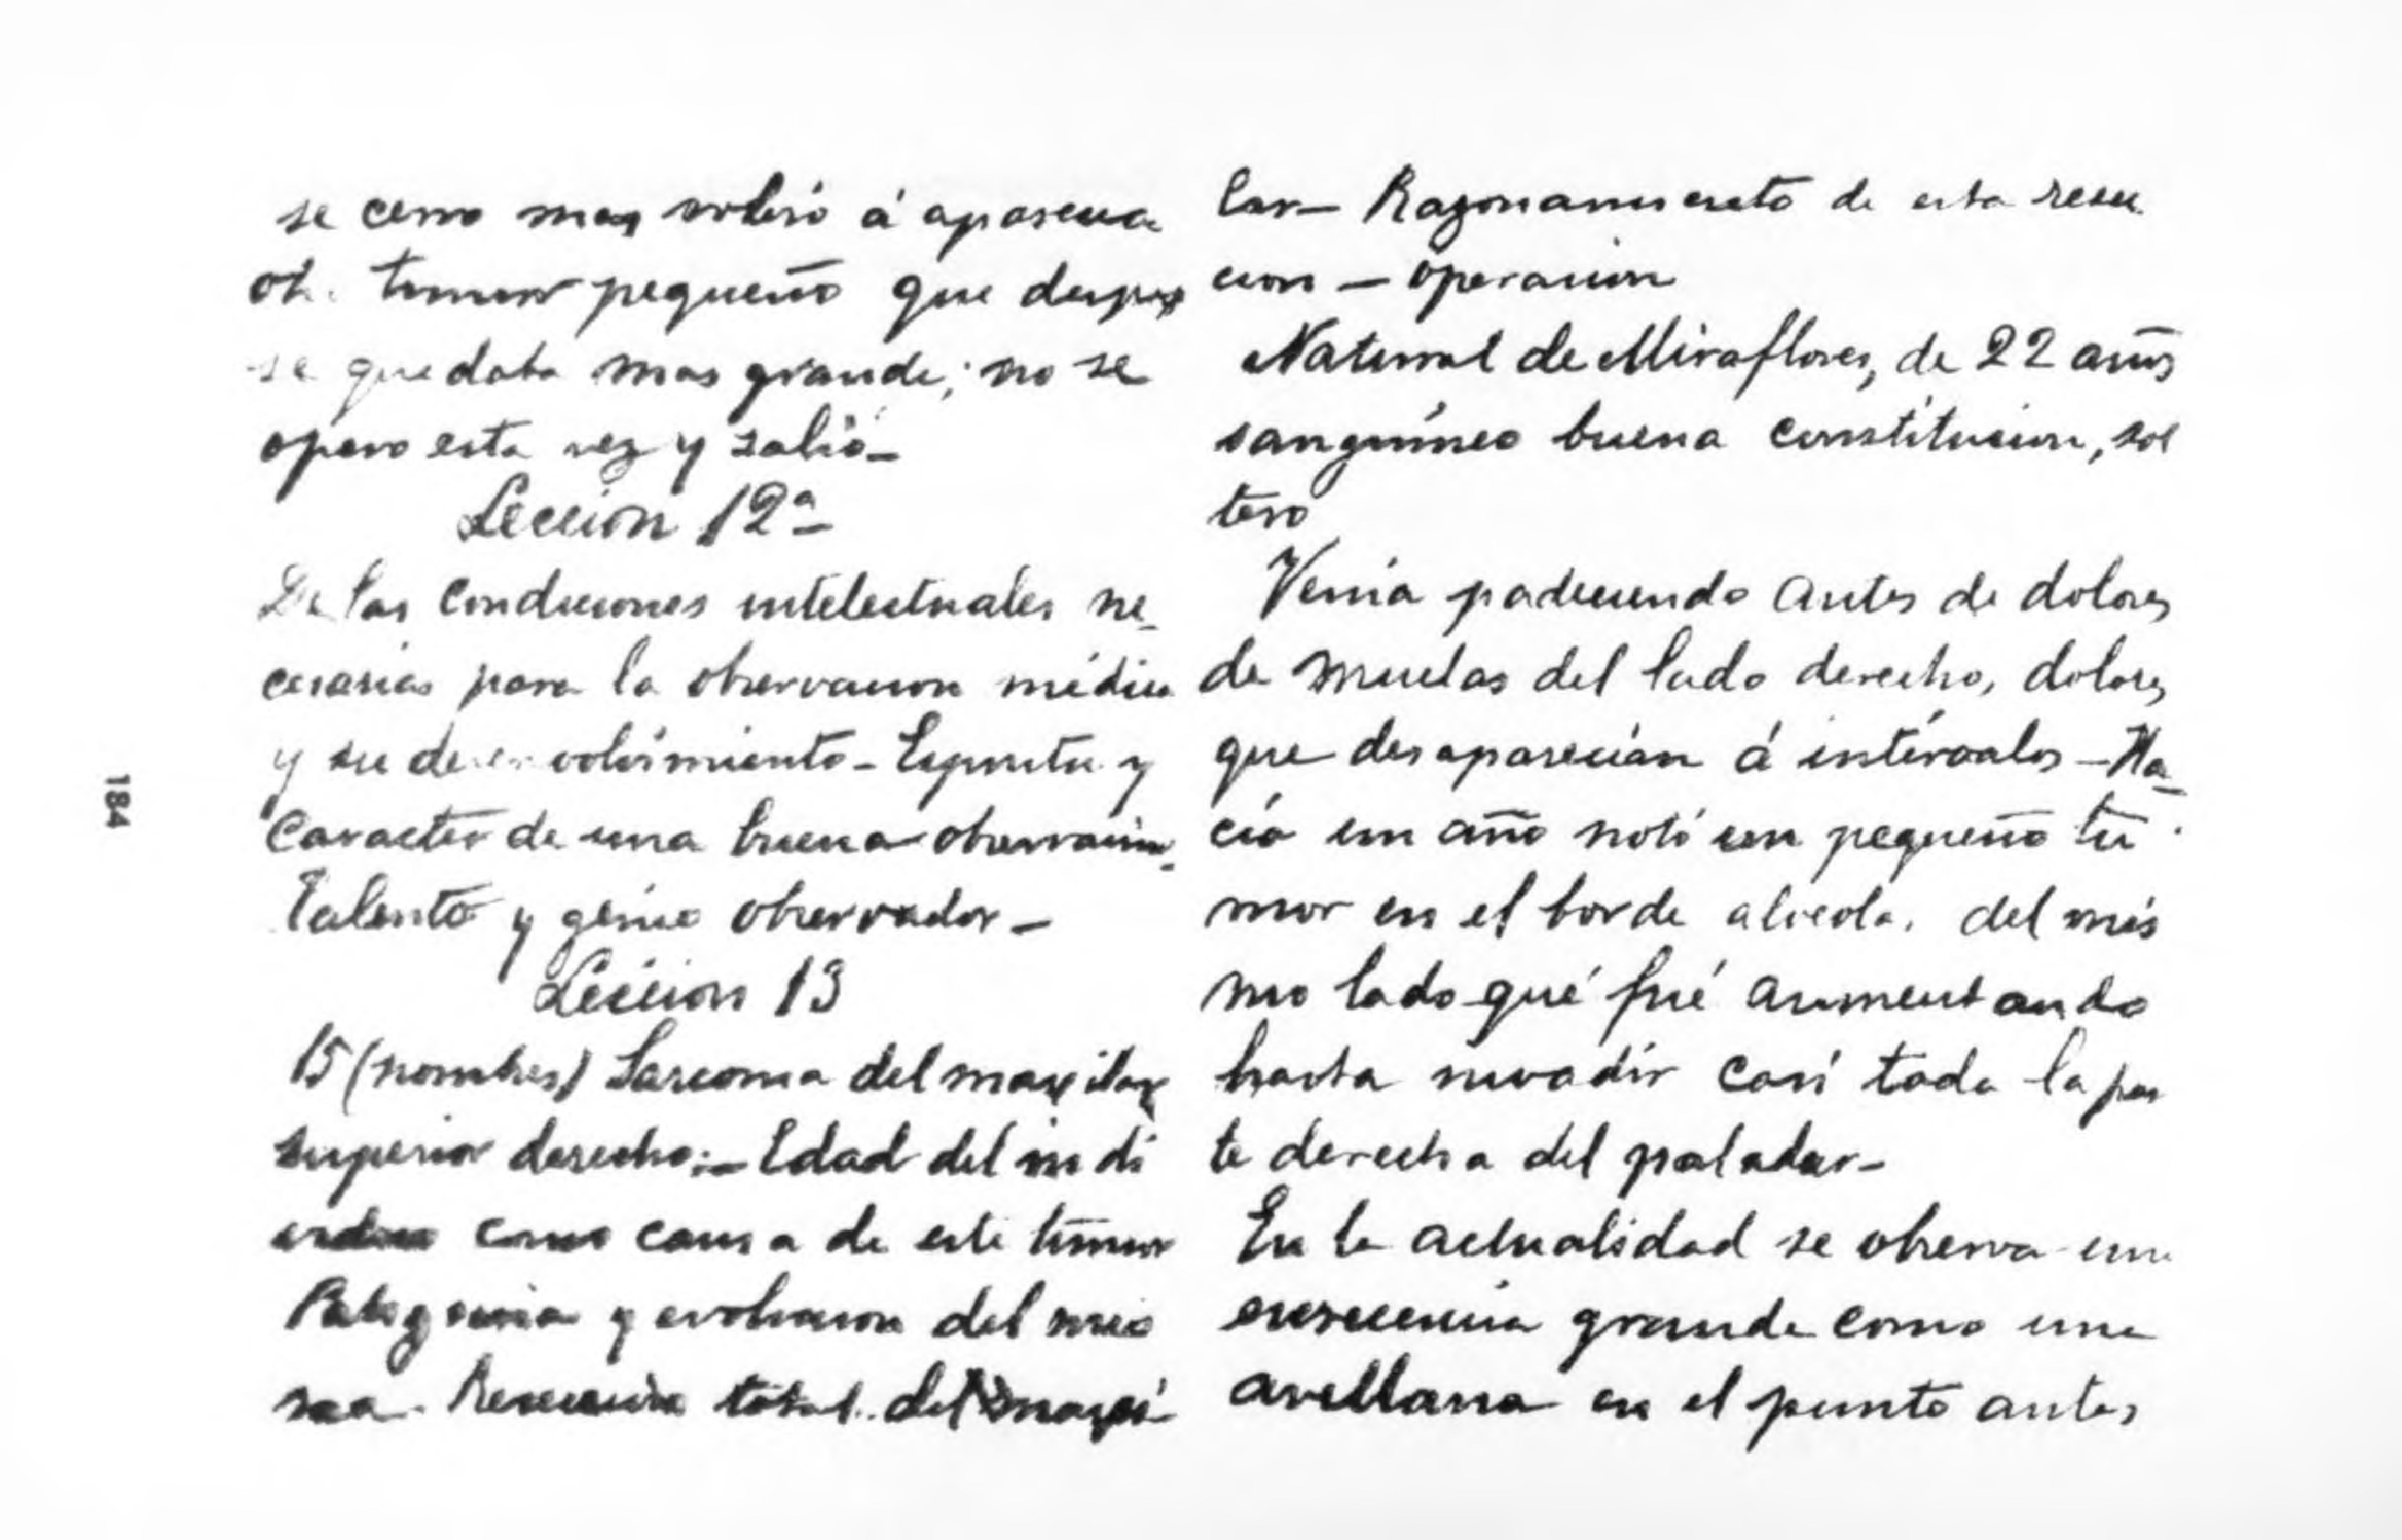 se cerro mas volvió á aparecer
otr. tumor pequeño que despues
se quedaba mas grande; no se
opero esta vez y salió—
Leccion 12ª
De las condiciones intelectuales ne-
cesarias para la observacion médica
y su desenvolvimiento—Espiritu y
Caracter de una buena observacion-
Talento y génio observador—
Leccion 13
15 (nombres) Sarcoma del maxilar
superior derecho:—Edad del indi
como causa de este tumor
Patogenia y evolucion del mis
Reseccion total del maxi
lar— Razonamiento de esta resec
cion — operacion
Natural de Miraflores, de 22 años
sanguíneo buena constitucion, sol
tero
Venía padeciendo antes de dolores
de muelas del lado derecho, dolores
que desaparecían á intérvalos—Ha-
cía un año notó un pequeño tu
mor en el borde alveola. del mis
mo lado qué fué aumentando
hasta invadir casi toda la par
te derecha del paladar—
En la actualidad se observa una
excrecencia grande como una
avellana en el punto antes
184